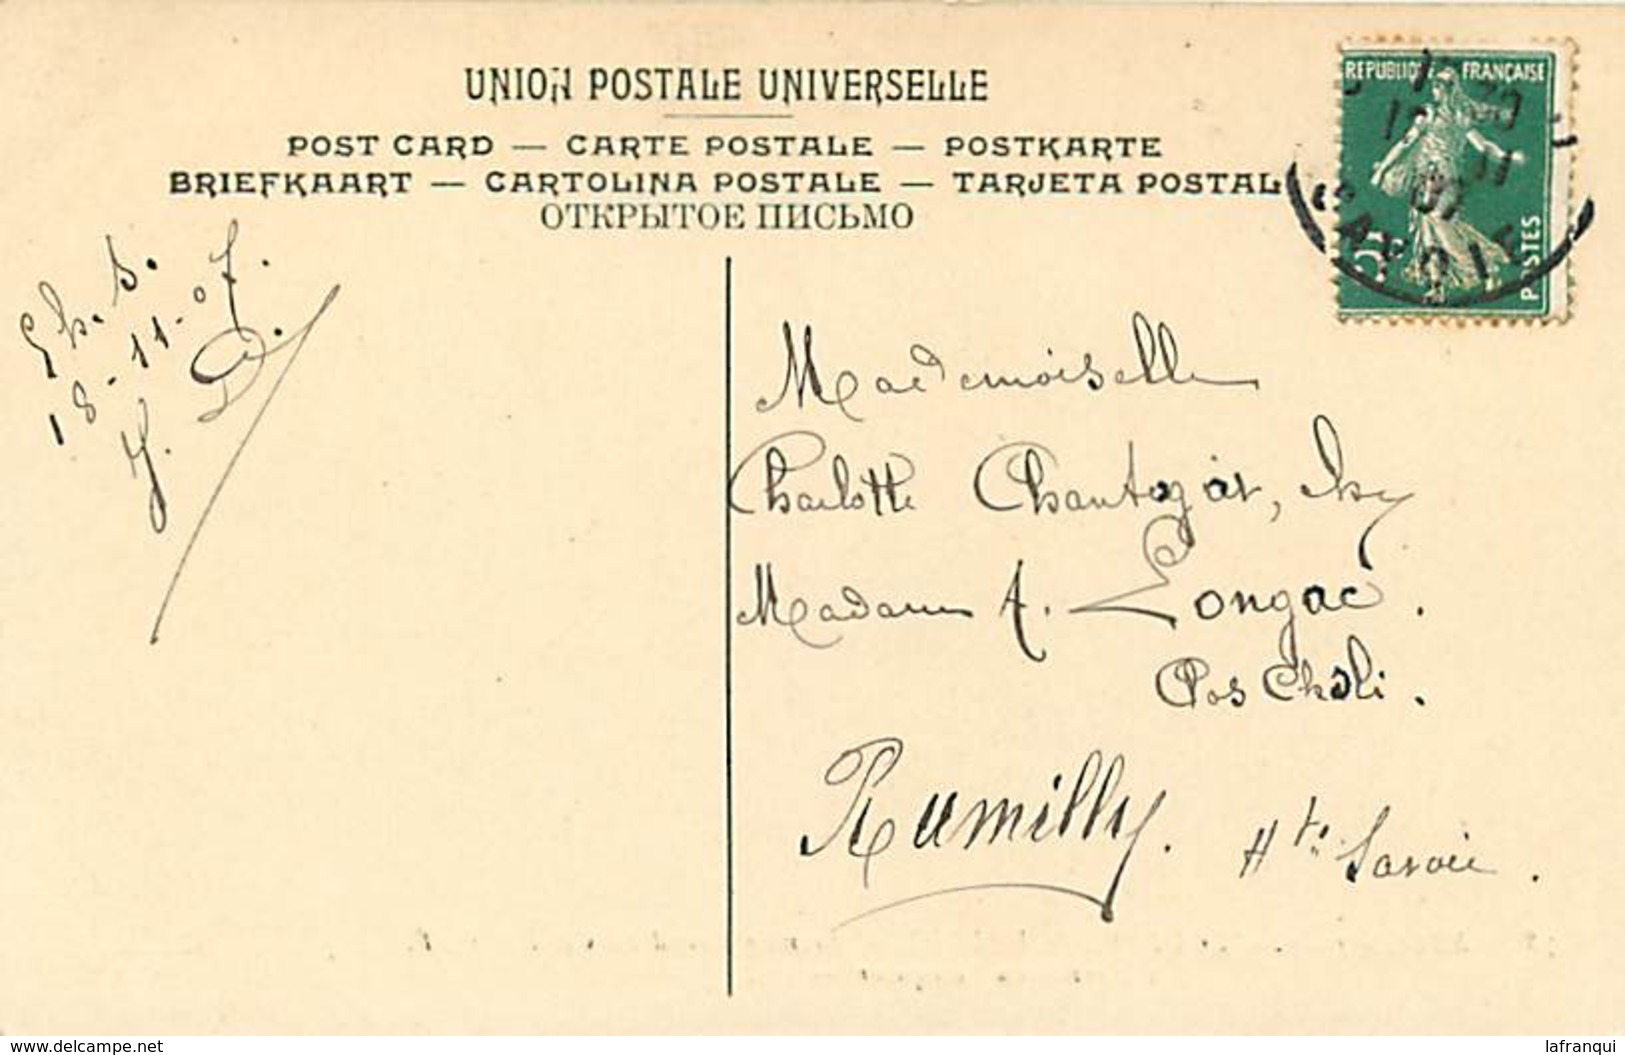 UNION POSTALE UNIVERSELLE
POST CARD — CARTE POSTALE — POSTKARTE
BRIEFKAART — CARTOLINA POSTALE — TARJETA POSTAL
ОТКРЫТОЕ ПИСЬМО
REPUBLIQUE FRANÇAISE
POSTES
SAVOIE
18-11-07.
Mademoiselle
Charlotte
Madame A. Longac.
Rumilly. Hte Savoie.
www.delcampe.net
lafranqui